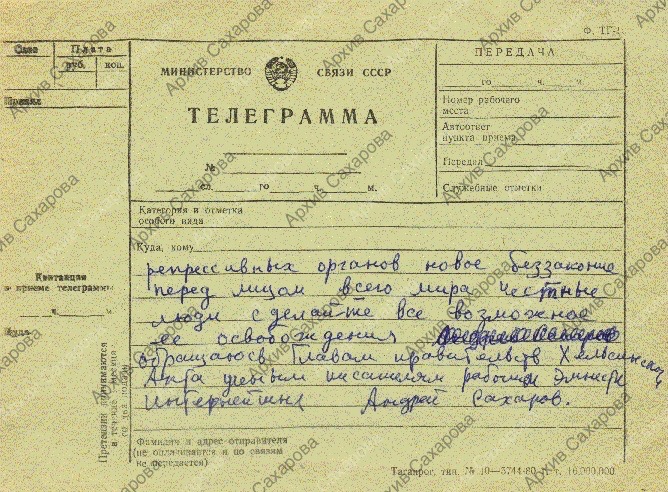 Ф. ТГ-1
Слов Плата
руб. коп.
Принял
Квитанция
о приеме телеграммы
ч. м.
Куда
Претензии принимаются
в течение
со дня подачи
МИНИСТЕРСТВО СВЯЗИ СССР
ТЕЛЕГРАММА
№
сл. го ч. м.
ПЕРЕДАЧА
го ч. м.
Номер рабочего
места
Автоответ
пункта приема
Передал
Служебные отметки
Категория и отметка
особого вида
Куда, кому
репрессивных органов новое беззаконие
перед лицом всего мира честные
люди сделайте все возможное
ее освобождения
обращаюсь Главам правительств Хельсинкск
Акта ученым писателям рабочим Эмнести
Интернейшнл Андрей Сахаров.
Фамилия и адрес отправителя
(не оплачивается и по связям
не передается)
Таганрог, тип. № 10—3744-80 г. т. 10.000.000
Архив Сахарова